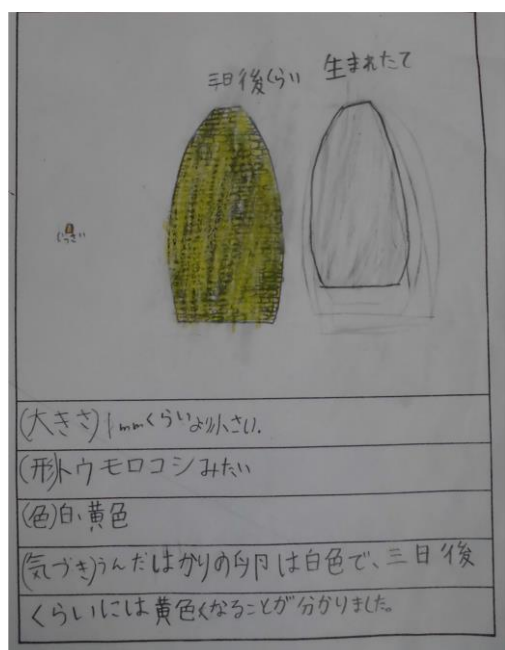 三日後くらい 生まれたて
じっさい
(大きさ)1mmくらいより小さい.
(形)トウモロコシみたい
(色)白、黄色
(気づき)うんだばかりの卵は白色で、三日後
くらいには黄色くなることが分かりました。